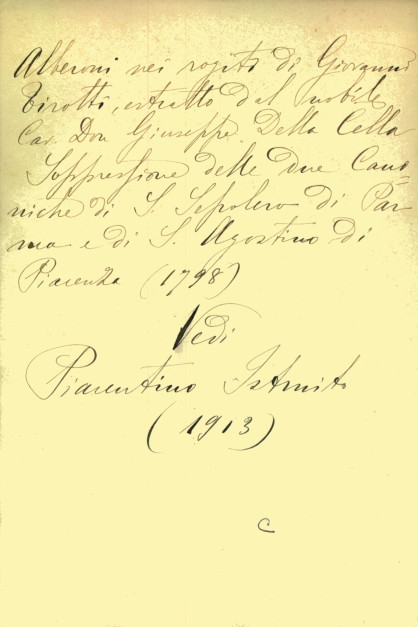 Alberoni nei rogiti di Giovanni
Tirotti, estratto dal nobile
Cav. Don Giuseppe Della Cella
Soppressione delle due Cano=
niche di S. Sepolcro di Par=
ma e di S. Agostino di
Piacenza (1798)
Vedi
Piacentino Istruito
(1913)
C